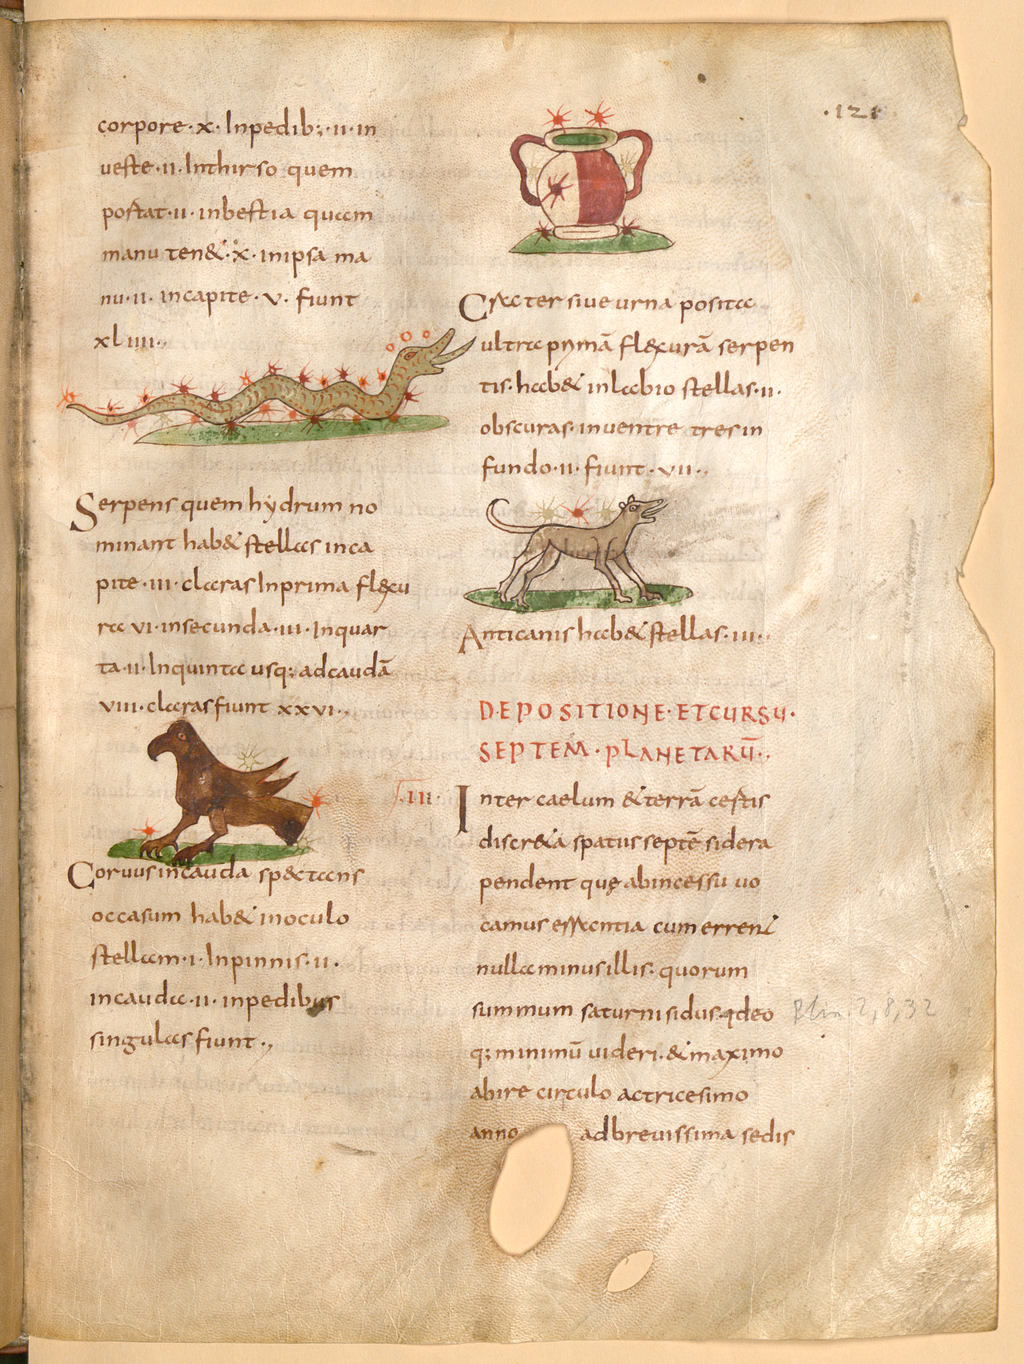 corpore·x· Inpedib;·ii·in
ueste·ii· Inthirso quem
postat·ii· inbestia quam
manu ten&·x· inipsa ma
nu·ii· incapite·v· fiunt
xliiii·,
Serpens quem hydrum no
minant hab& stellas inca
pite·iii· claras Inprima flexu
ra vi· insecunda·iii· Inquar
ta·ii· Inquinta usq; adcaudã
viii· claras fiunt xxvi·,
Coruus incauda sp&tans
occasum hab& inoculo
stellam·i· Inpinnis·ii·
incauda·ii· inpedibus
singulas fiunt·,
·121
Crater siue urna posita
ultra primã flexurã serpen
tis· hab& inlabio stellas·ii·
obscuras· inuentre tres in
fundo·ii· fiunt·vii·,
Anticanis hab& stellas·iii·,
DEPOSITIONE·ETCURSU·
SEPTEM·PLANETARŪ·,
·III·
Inter caelum &terrã cęstis
discr&a spatiis septẽ sidera
pendent quę abincessu uo
camus cum erren&
nulla minus illis· quorum
summum saturni sidus· ideo
q; minimũ uideri· &maximo
abire circulo actricesimo
anno adbreuissima sedis
Plin 2,8,32